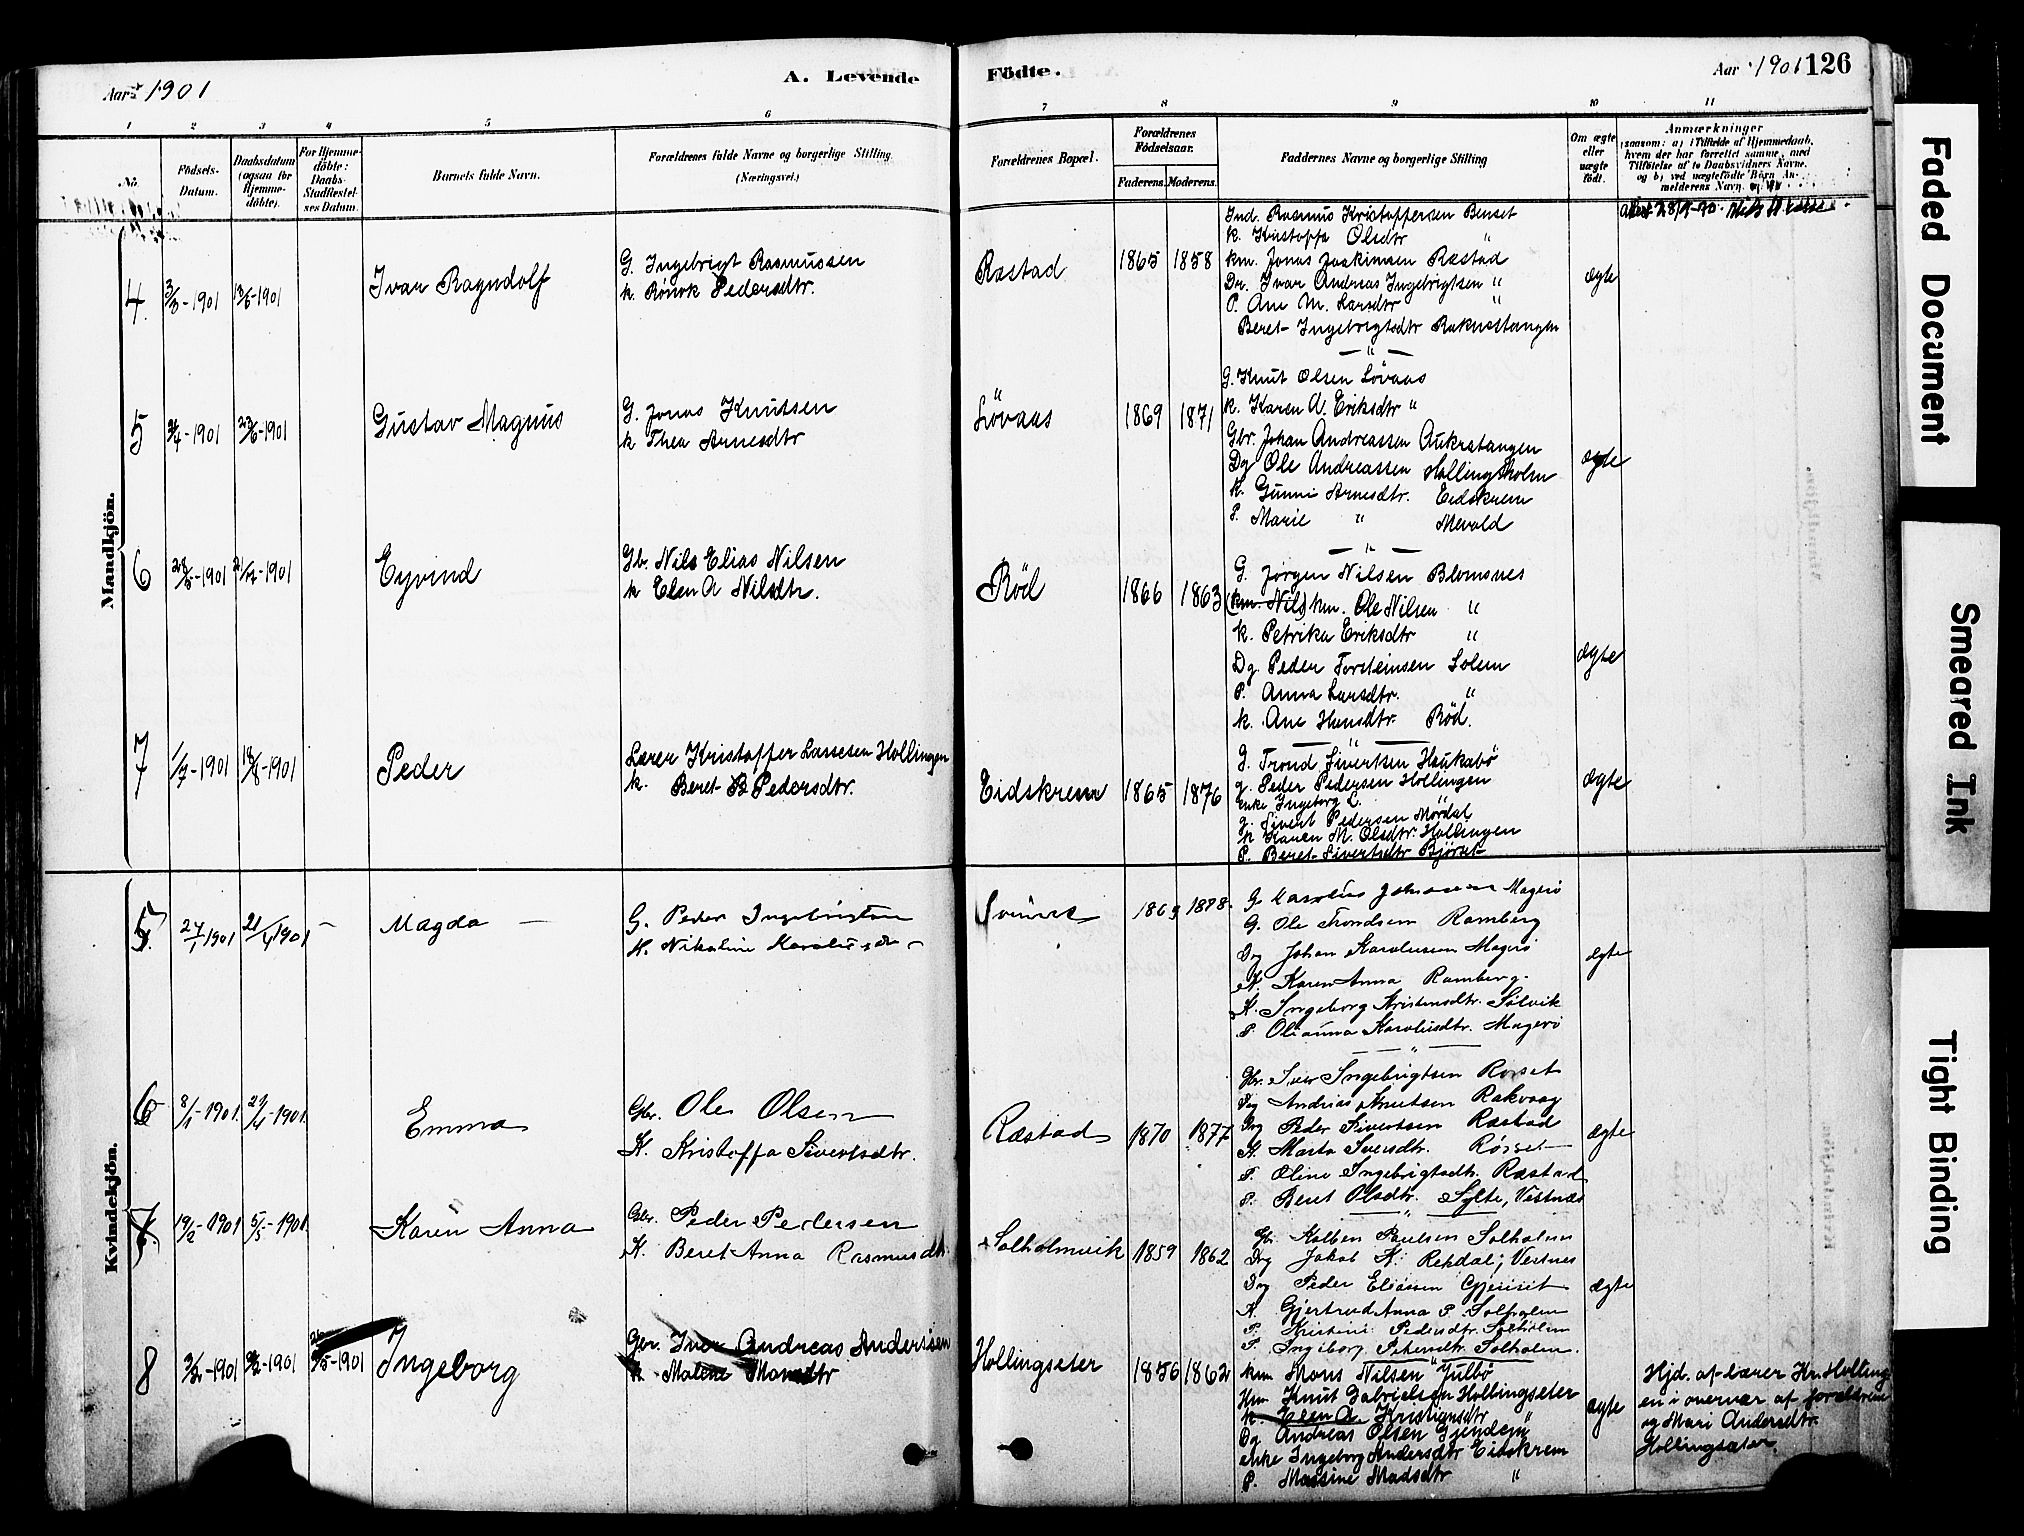 Aar 1901
A. Levende
Födte.
Aar 1901 126
1 2 3 4 5 6 7 8 9 10 11
No.
Födsels-Datum.
Daabsdatum (ogsaa for Hjemme-döbte).
For Hjemme-döbte: Daabs-Stadfæstel-ses Datum.
Barnets fulde Navn.
Forældrenes fulde Navne og borgerlige Stilling (Næringsvei.)
Forældrenes Bopæl.
Forældrenes Födselsaar.
Faderens. Moderens.
Faddernes Navne og borgerlige Stilling
Om ægte eller uægte födt.
Anmærkninger
(saasom: a) i Tilfælde af Hjemmedaab, hvem der har forrettet samme, med Tilföielse af to Daabsvidners Navne, og b) ved uægtefödte Börn An-melderens Navn.
Mandkjön.
4 3/3-1901 1901 Ivar Ragndolf
G. Ingebrigt Rasmussen
k. Rönok Pedersdtr.
Ræstad 1865 1858
Ind. Rasmus Kristoffersen Benset
k. Kristoffa Olsdtr "
km. Jonas Joakimsen Ræstad
Dr. Ivar Andreas Ingebrigtsen "
P. Ane M. Larsdtr "
Beret Ingebrigtsdtr Rakvaatangen
ægte
5 1901 23/6-1901 Gustav Magnus
G. Jonas Knutsen
k Thea Arnesdtr
Lövaas 1869 1871
G. Knut Olsen Lövaas
k. Karen A. Eriksdtr "
Gbr. Johan Andreassen Aukratangen
Dg Ole Andreassen Hollingsholm
k. Gunni Arnesdtr. Eidskrem
P. Marie " Mevold
ægte
6 1901 1901 Eyvind
Gb. Nils Elias Nilsen
k Elen A Nilsdtr.
Röd 1866 1863
G. Jörgen Nilsen Blomsnes
(km. Nils) km. Ole Nilsen "
k. Petrika Eriksdtr "
Dg. Peder Torsteinsen Solem
P. Anna Larsdtr. "
k. Ane Hansdtr. Röd.
ægte
7 1/7-1901 18/8-1901 Peder
Lærer Kristoffer Lassesen Hollingen
k. Beret B Pedersdtr.
Eidskrem 1865 1876
G. Trond Sivertsen Haukabö
g. Peder Pedersen Hollingen
enke Ingeborg L. "
g. Sivert Pedersen Mördal
k Karen M. Olsdtr. Hollingen
P. Beret Sivertsdtr Björset
ægte
Kvindekjön.
5 27/1 1901 21/4 1901 - Magda -
G. Peder Ingebrigtsen
K. Nikoline
1869 1878
G. Johansen Magerö
G. Ole Trondsen Ramberg
Dg Johan Karolusen Magerö
K. Karen Anna Ramberg.
K. Ingeborg Kristensdtr. Sölvik
P. Olianna Karolusdtr. Magerö
ægte
6 8/1-1901. 21/4-1901. Emma
Gbr. Ole Olsen
K. Kristoffa Sivertsdtr.
Ræstad 1870 1877
Gbr. Iver Ingebrigtsen Rörset
Dg Andrias Knutsen Rakvaag
Dg Peder Sivertsen Ræstad
K. Marta Iversdtr. Rörset
P. Oline Ingebrigtsdtr. Ræstad
P. Beret Olsdtr. Sylte, Vestnæs
ægte
7 19/2-1901 5/5-1901. Karen Anna
Gbr. Peder Pedersen
K. Beret Anna Rasmusdtr
Solholmvik 1859 1862
Gb. Kolben Paulsen Solholm
Dg Jakob K. Rekdal, Vestnes
Dg Peder Eliassen Gjerset
K. Gjertrud Anna P. Solholm
P. Kristine Pedersdtr. Solholm
P. Ingeborg Petersdtr. Solholm.
ægte
8 3/2-1901 1901 1901 Ingeborg
Gbr. Iver Andreas Andersen
k Malene Monsdtr
Hollingseter 1856 1862
km Mons Nilsen Julbö
Hm Knut Gabrielsen Hollingseter
k. Elen A. Kristiansdtr "
Dg Andreas Olsen Gjendem
enke Ingeborg Andersdtr Eidskrem
P. Massine Madsdtr "
ægte
Hjd. af lærer Kr. Holling-
en i overvær af forældrene
og Mari Andersdtr.
Hollingsæter.
Faded Document
Smeared Ink
Tight Binding